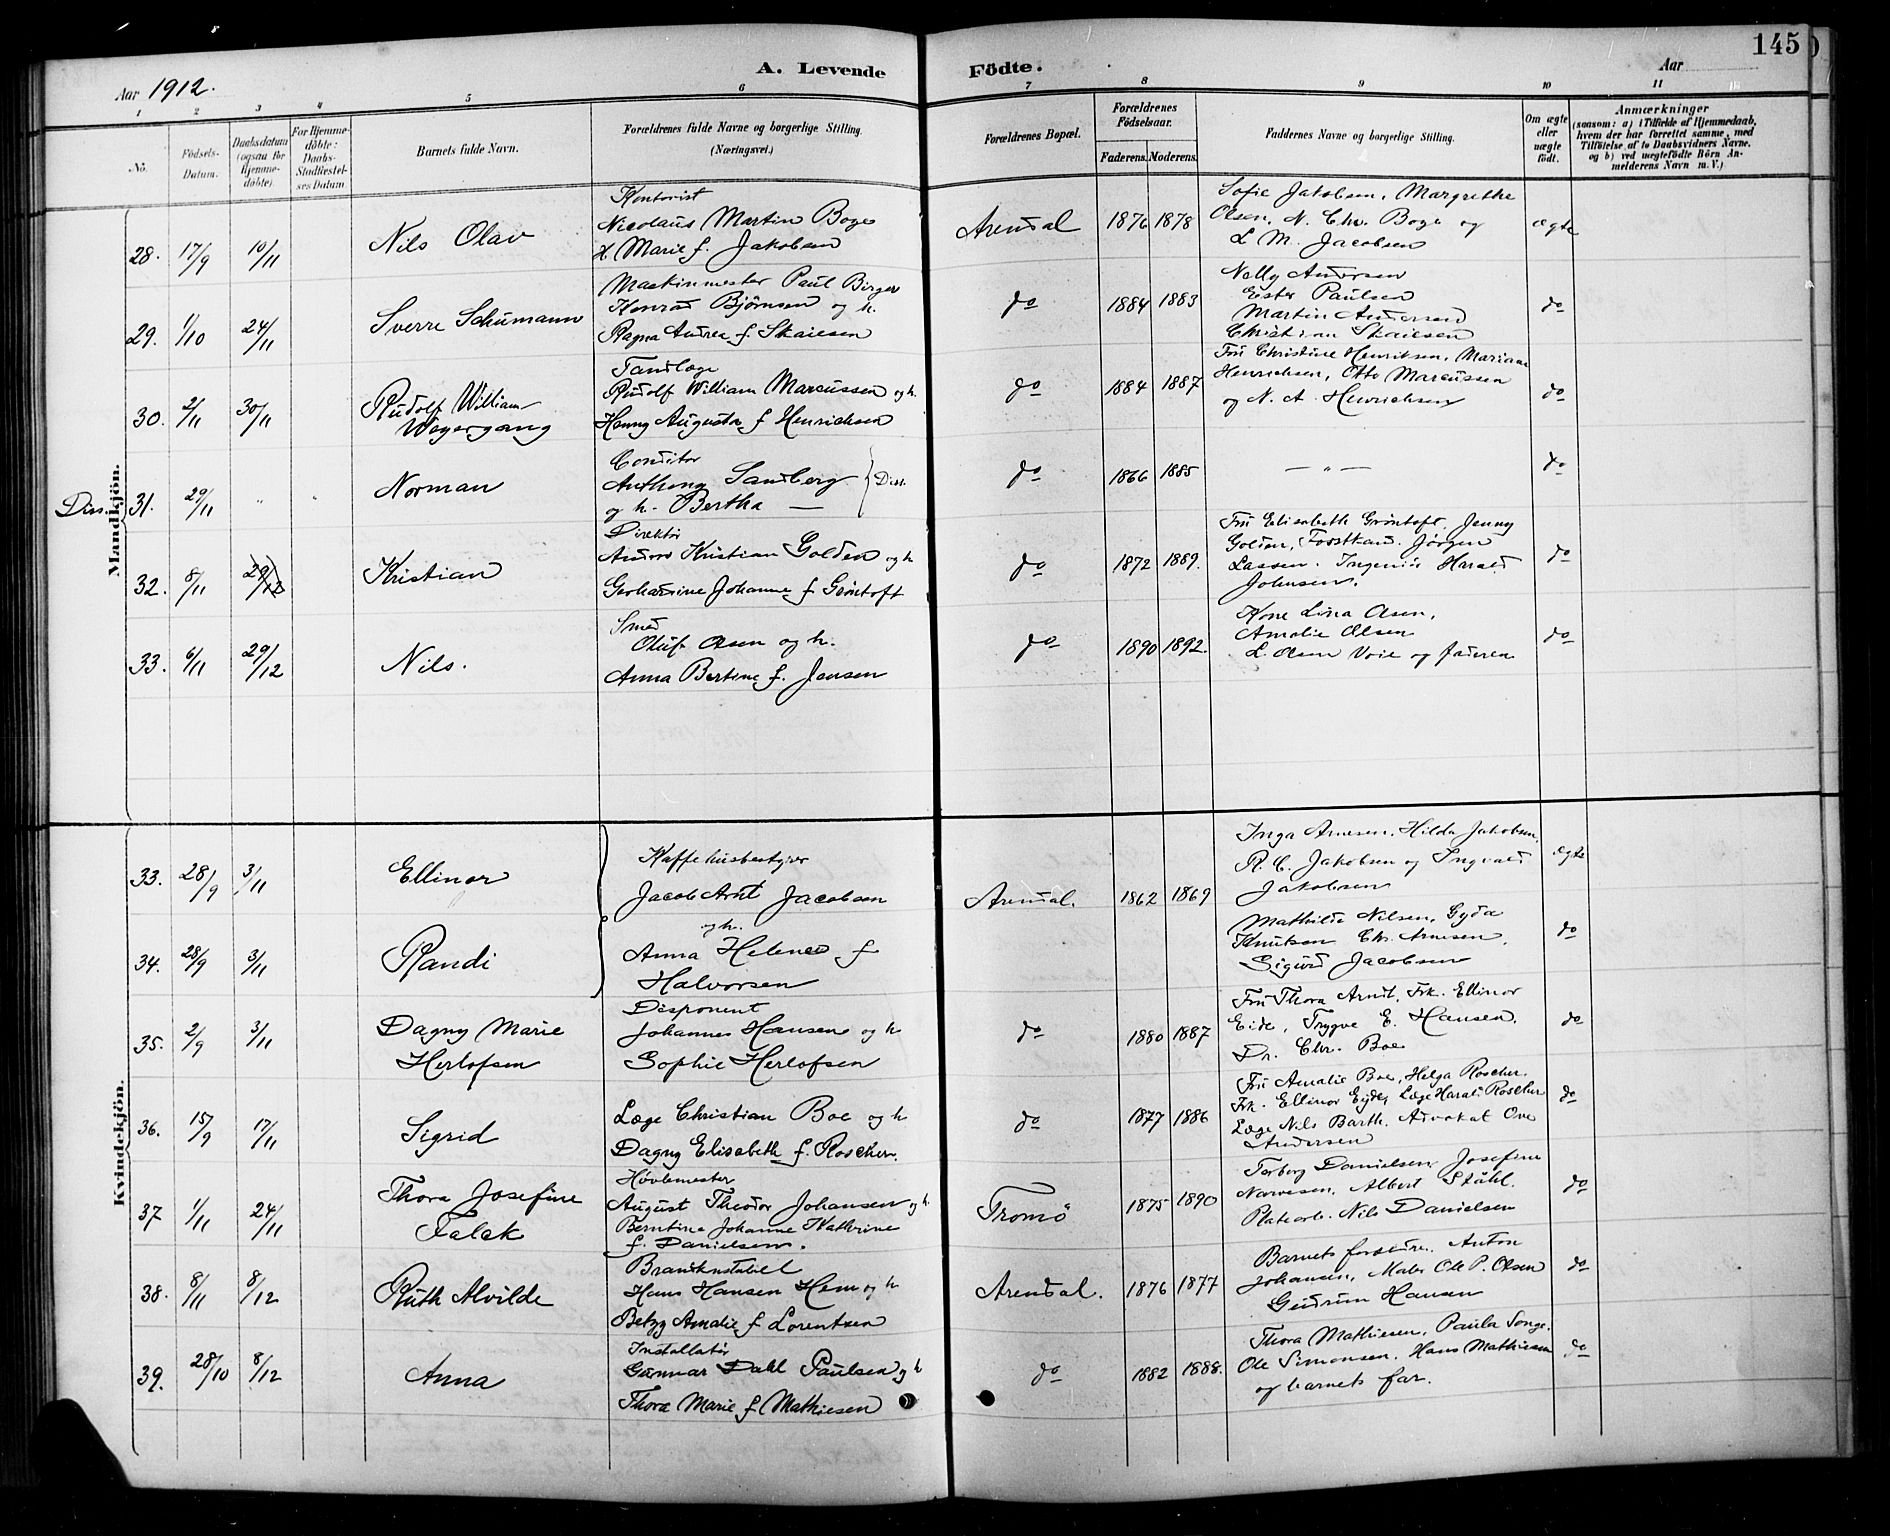 145
A. Levende Födte.
Aar 1912.
Aar
1 2 3 4 5 6 7 8 9 10 11
No.
Födsels-Datum.
Daabsdatum (ogsaa for Hjemmedöbte).
For Hjemmedöbte: Daabs-Stadfæstelses Datum.
Barnets fulde Navn.
Forældrenes fulde Navne og borgerlige Stilling. (Næringsvei.)
Forældrenes Bopæl.
Forældrenes Födselsaar.
Faderens. Moderens.
Faddernes Navne og borgerlige Stilling.
Om ægte eller uægte født.
Anmærkninger
(saasom: a) i Tilfælde af Hjemmedaab, hvem der har forrettet samme, med Tilföielse af to Daabsvidners Navne, og b) ved uegtefödte Börn Anmelderens Navn m. V.)
Mandkjön.
28. 17/9 10/11 Nils Olav
Kontorist
Nicolaus Martin Boge
& Marie f. Jakobsen
Arendal 1876 1878
Sofie Jakobsen, Margrethe
Olsen, N. Chr. Boge og
L M. Jacobsen
ægte
29. 1/10 24/11 Sverre Schumann
Maskinmester Paul Birger
Konrad Björnsen og h.
Ragna Andrea f. Skaiesen
do 1884 1883
Nelly Andersen
Ester Paulsen
Martin Andersen
Christian Skaiesen
do
30. 2/11 30/11 Rudolf William
Weyergang
Tandlæge
Rudolf William Marcussen og h.
Henny Augusta f Henrichsen
do 1884 1887
Fru Christine Henriksen, Mariane
Henrichsen, Otto Marcussen
og N. A. Henrichsen
do
Diss. 31. 29/11 " " Norman
Conditor
Anthony Sandberg
og h. Bertha — } Diss.
do 1866 1885
— " —
do
32. 8/11 29/12 Kristian
Direktör
Anders Kristian Golden og h
Gerhardine Johanne f Gröntoft
do 1872 1889.
Fru Elisabeth Gröntoft, Jenny
Golden, Forstkand. Jörgen
Lassen. Ingeniör Harald
Johnsen.
do
33. 6/11 29/12 Nils.
Smed
Oluf Olsen og h.
Anna Bertine f. Jensen
do 1890 1892.
Kone Lina Olsen,
Amalie Olsen
L. Olsen Voie og faderen
do
Kvindekjön.
33. 28/9 3/11 Ellinor
Kaffehusbestyrer
Jacob Arnt Jacobsen
og h.
Anna Helene f
Halvorsen
Arendal. 1862 1869
Inga Arnesen, Hilda Jakobsen,
R. C. Jakobsen og Ingvald
Jakobsen
ægte
34. 28/9 3/11 Randi
Mathilde Nilsen, Gyda
Knutsen Chr. Arnesen,
Sigurd Jacobsen
do
35. 2/9 3/11 Dagny Marie
Herlofsen
Disponent
Johannes Hansen og h
Sophie Herlofsen
do 1880 1887
Fru Thora Arndt, Frk. Ellinor
Eide, Trygve E. Hansen,
Dr. Chr. Boe
do
36. 15/9 17/11 Sigrid
Læge Christian Boe og h
Dagny Elisabeth f. Roscher.
do 1877 1886
Fru Amalie Boe, Helga Roscher.
Frk. Ellinor Eyde, Læge Harald Roscher
Læge Nils Barth. Advokat Ove
Andersen
do
37 1/11 24/11 Thora Josefine
Falck
Hövlemester
August Theodor Johansen og h.
Berntine Johanne Kathrine
f. Danielsen.
Tromö 1875 1890
Torborg Danielsen, Josefine
Narvesen, Albert Ståhl.
Platearb. Nils Danielsen
do
38. 8/11 8/12 Ruth Alvilde
Brandkonstabel
Hans Hansen Hem og h
Betzy Amalie f Lorentzen
Arendal. 1876 1877
Barnets forældre. Anton
Johansen, Maler Ole P. Olsen
Gudrun Hansen
do
39. 28/10 8/12 Anna
Installatör
Gunnar Dahl Paulsen og h
Thora Marie f Mathiesen
do 1882 1888.
Thora Mathiesen, Paula Songe.
Ole Simonsen, Hans Mathiesen
og barnets far.
do